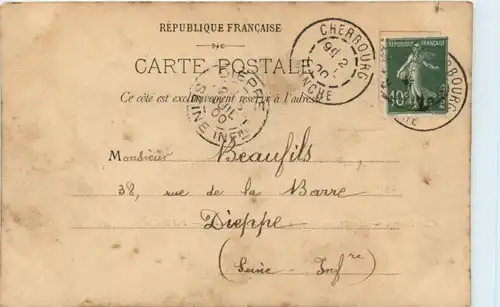 RÉPUBLIQUE FRANÇAISE
CARTE POSTALE
Ce côté est exclusivement réservé à l'adresse
CHERBOURG
MANCHE
DIEPPE
JUIL
00
SEINE INFRE
REPUBLIQUE FRANÇAISE
10
CHERBOURG
Monsieur Beaufils
38, rue de la Barre
Dieppe
(Seine-Infre)